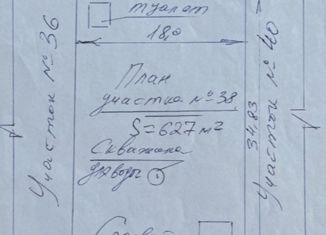 туалет
18,0
Участок № 36
План
участка № 38
S=627 м²
Скважина
для воды
34.83
Участок № 40